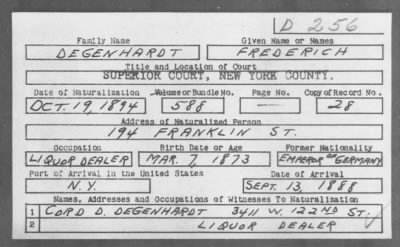 D 256
Family Name Given Name or Names
DEGENHARDT FREDERICH
Title and Location of Court
SUPERIOR COURT, NEW YORK COUNTY.
Date of Naturalization Volume or Bundle No. Page No. Copy of Record No.
OCT. 19, 1894 588 — 28
Address of Naturalized Person
194 FRANKLIN ST.
Occupation Birth Date or Age Former Nationality
LIQUOR DEALER MAR. 7, 1873 EMPEROR OF GERMANY
Port of Arrival in the United States Date of Arrival
N.Y. SEPT. 13, 1888
Names, Addresses and Occupations of Witnesses To Naturalization
1 CORD D. DEGENHARDT 3411 W. 122ND ST.
2 LIQUOR DEALER